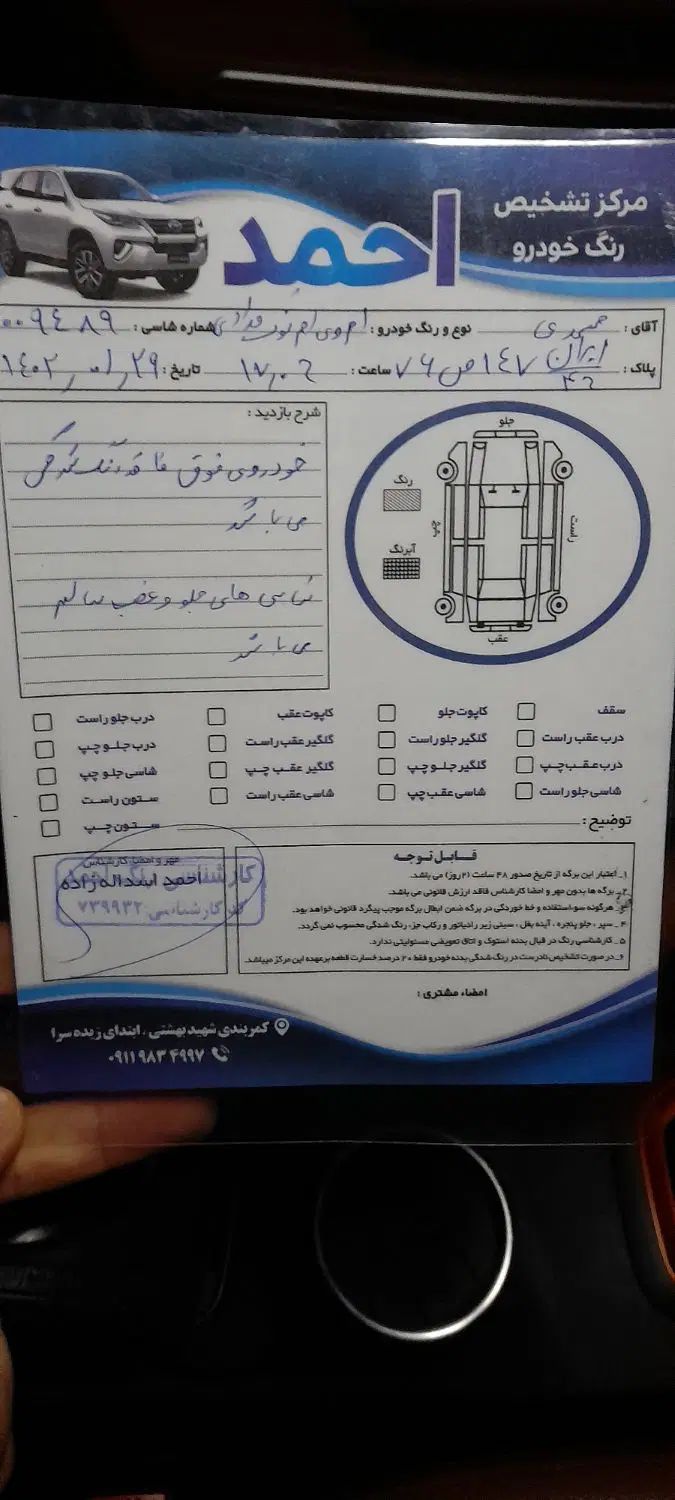 مرکز تشخیص
رنگ خودرو
احمد
آقای : حمیدی نوع و رنگ خودرو : ام وی ام نوک مدادی شماره شاسی : ۰۰۹۴۸۹
پلاک : ایران ۴۶ ۱۴۷ ص ۷۶ ساعت : ۱۷،۰۶ تاریخ : ۱۴۰۲,۰۱,۲۹
شرح بازدید :
خودروی فوق فاقد رنگ شدگی
می باشد
شاسی های جلو و عقب سالم
می باشد
جلو
رنگ
آبرنگ
چپ
راست
عقب
سقف کاپوت جلو کاپوت عقب درب جلو راست
درب عقب راست گلگیر جلو راست گلگیر عقب راست درب جلو چپ
درب عقب چپ گلگیر جلو چپ گلگیر عقب چپ شاسی جلو چپ
شاسی جلو راست شاسی عقب چپ شاسی عقب راست ستون راست
ستون چپ
توضیح :
قابل توجه
۱_ اعتبار این برگه از تاریخ صدور ۴۸ ساعت (۲روز) می باشد.
۲_ برگه ها بدون مهر و امضا کارشناس فاقد ارزش قانونی می باشد.
۳_ هرگونه سو،استفاده و خط خوردگی در برگه ضمن ابطال برگه موجب پیگرد قانونی خواهد بود.
۴ _ سپر ، جلو پنجره ، آینه بغل ، سینی زیر رادیاتور و رکاب جز، رنگ شدگی محسوب نمی گردد.
۵ _ کارشناسی رنگ در قبال بدنه استوک و اتاق تعویضی مسئولیتی ندارد.
۶_ در صورت تشخیص نادرست در رنگ شدگی بدنه خودرو فقط ۲۰ درصد خسارت قطعه بر عهده این مرکز میباشد.
مهر و امضاء کارشناس
احمد اسداله زاده
کارشناسی رنگ احمد
کد کارشناسی: ۷۳۹۹۳۲
امضاء مشتری :
کمربندی شهید بهشتی ، ابتدای زیده سرا
۰۹۱۱ ۹۸۳ ۴۹۹۷